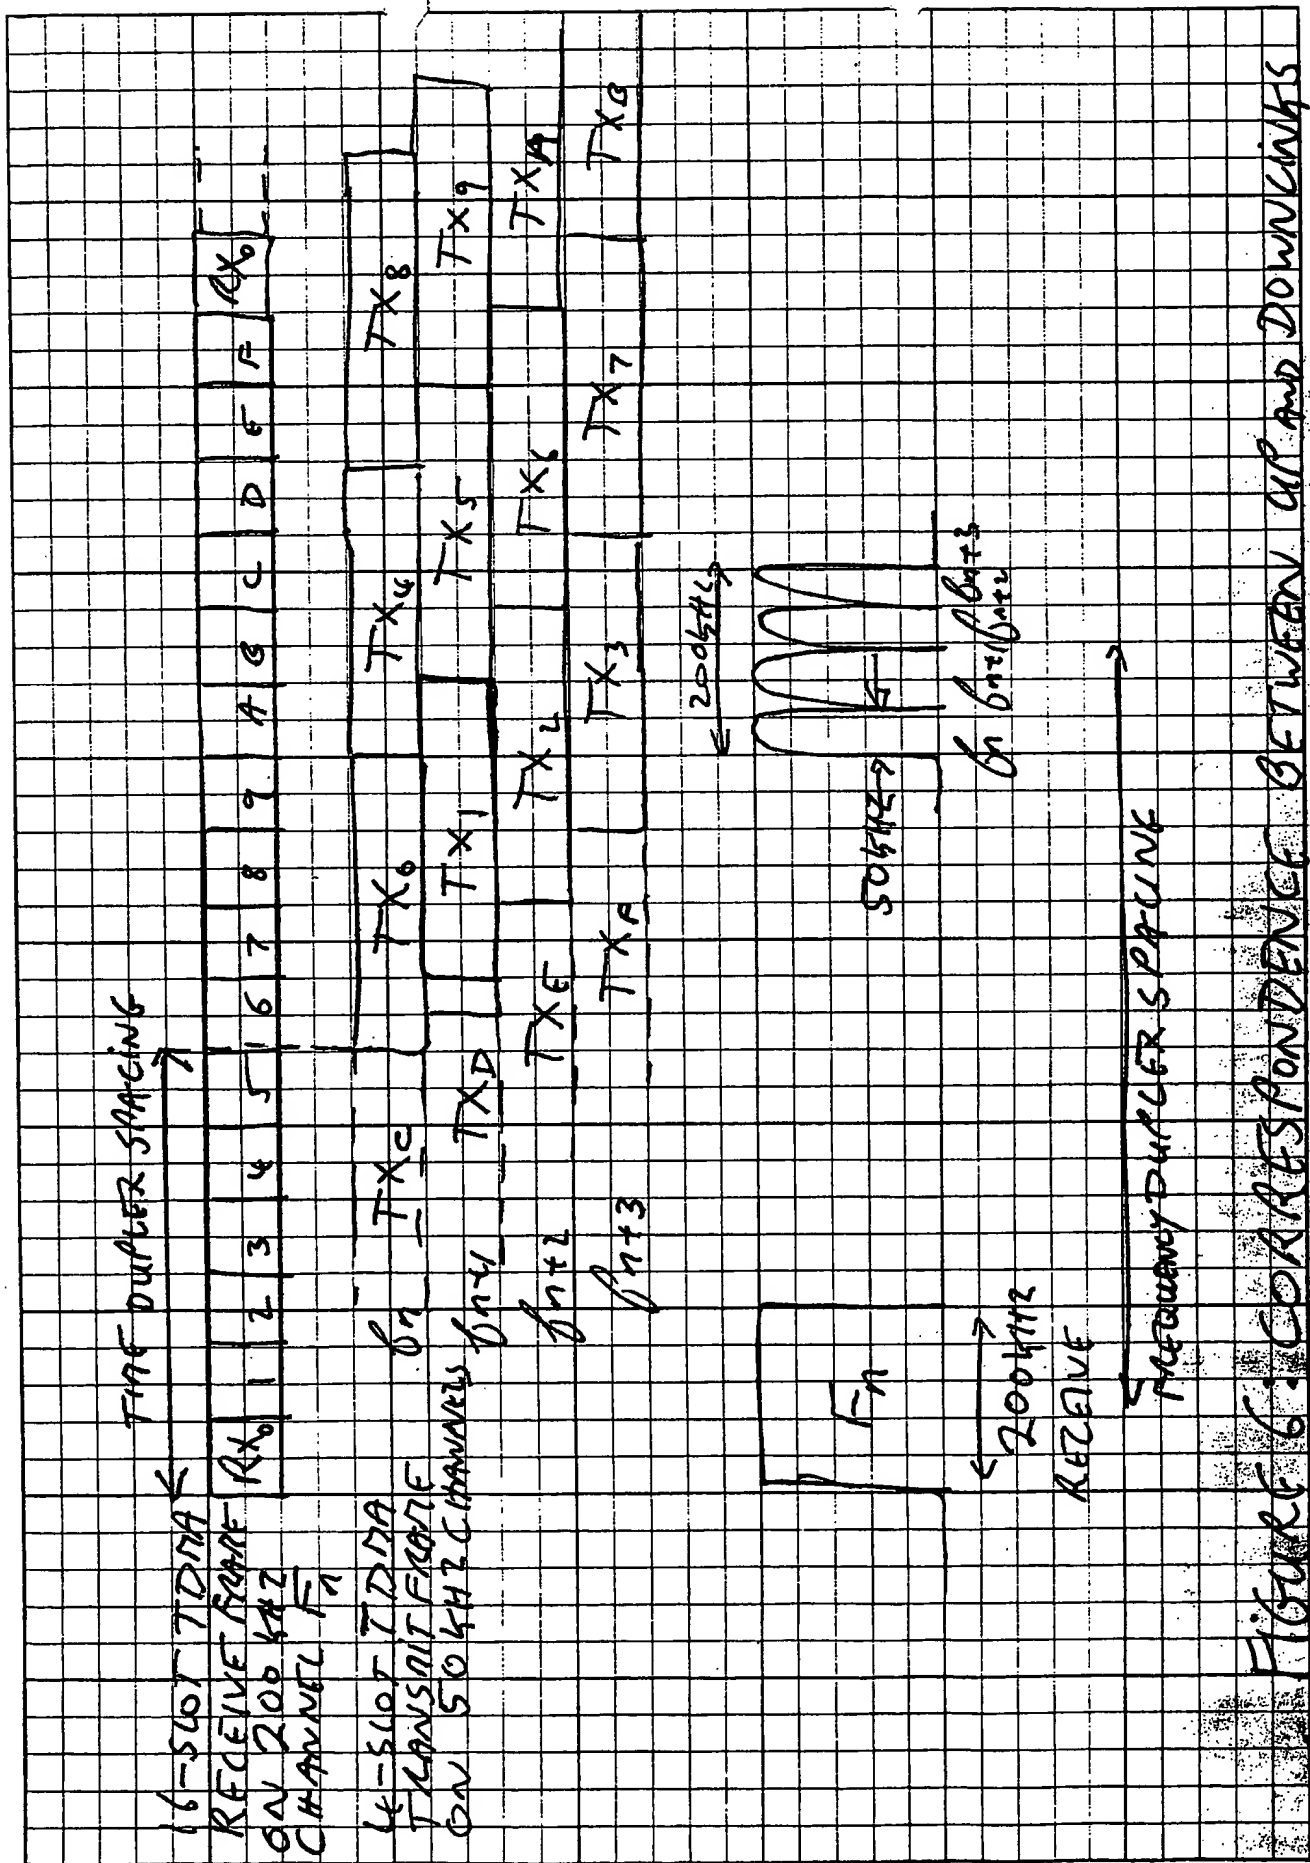 TIME DUPLEX SPACING
16-SLOT TDMA
RECEIVE FRAME
ON 200 KHZ
CHANNEL Fn
RX0 1 2 3 4 5 6 7 8 9 A B C D E F RX0
4-SLOT TDMA
TRANSMIT FRAME
ON 50 KHZ CHANNELS
fn TXC TX0 TX4 TX8
fn+1 TXD TX1 TX5 TX9
fn+2 TXE TX2 TX6 TXA
fn+3 TXF TX3 TX7 TXB
200KHZ
50KHZ
Fn
fn fn+1 fn+2 fn+3
200KHZ
RECEIVE
FREQUENCY DUPLEX SPACING
FIGURE 6: CORRESPONDENCE BETWEEN UP AND DOWNLINKS